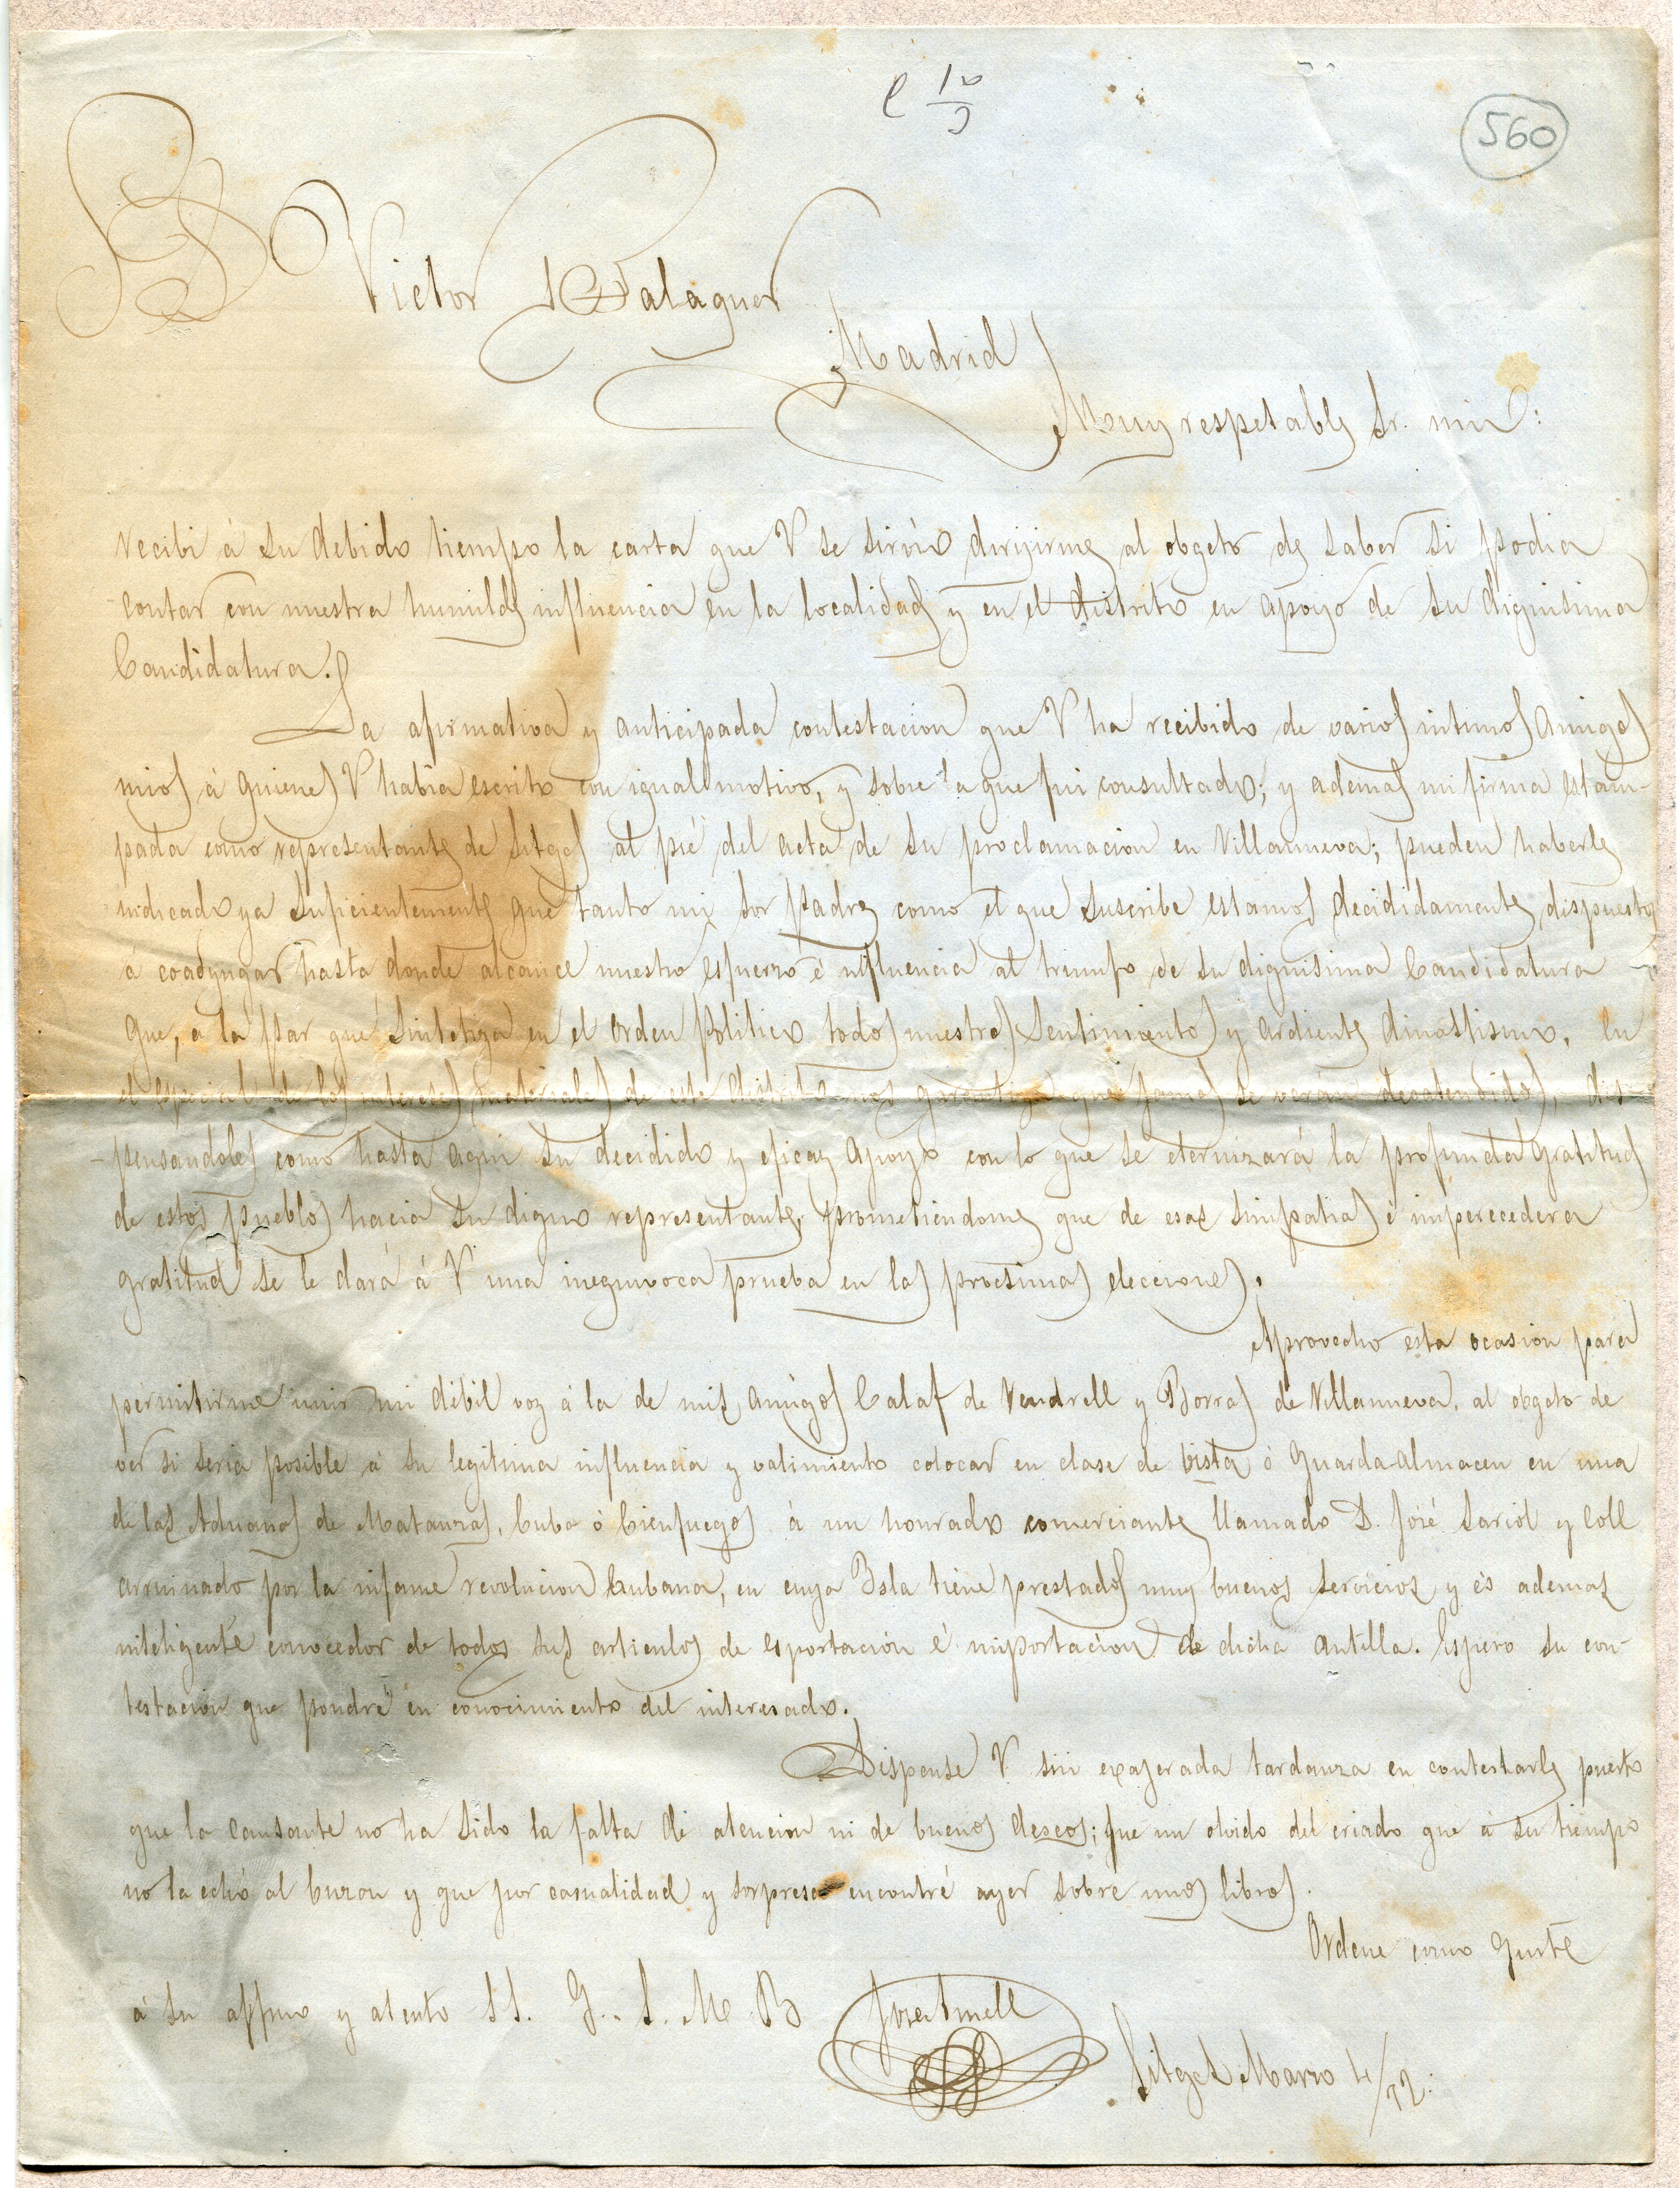 560
Dn Victor Balaguer
Madrid
Muy respetable Sr. mio:
recibi á su debido tiempo la carta que V se sirvió dirijirme al obgeto de saber si podia
contar con nuestra humilde influencia en la localidad y en el distrito en apoyo de su dignisima
Candidatura.
La afirmativa y anticipada contestacion que V ha recibido de varios intimos Amigos
mios á quienes V habia escrito con igual motivo, y sobre la que fui consultado; y ademas mi firma estam-
pada como representante de Sitges al pié del acta de su proclamacion en Villanueva; pueden haberle
indicado ya suficientemente que tanto mi Sor Padre como el que suscribe estamos decididamente dispuestos
á coadyugar hasta donde alcance nuestro esfuerzo é influencia al triunfo de su dignisima Candidatura
que, á la par que sintetiza en el orden Politico todos nuestros sentimientos y ardiente dinastismo, en
el especial de los intereses materiales de este distrito nos garantiza que jamas se verán desatendidos, dis-
-pensandoles como hasta aqui su decidido y eficaz apoyo con lo que se eternizará la profunda gratitud
de estos pueblos hacia su digno representante, prometiendome que de esas simpatias é imperecedera
gratitud se le dará á V una inequivoca prueba en las procsimas elecciones.
Aprovecho esta ocasion para
permitirme unir mi débil voz á la de mis amigos Calaf de Vendrell y Borras de Villanueva, al obgeto de
ver si seria posible á su legitima influencia y valimiento colocar en clase de vista ó Guarda-Almacen en una
de las Aduanas de Matanzas, Cuba ó Cienfuegos á un honrado comerciante llamado D. José Sariol y Coll
arruinado por la infame revolucion Cubana, en cuya Isla tiene prestados muy buenos servicios y és ademas
inteligente conocedor de todos sus articulos de esportacion é importacion de dicha antilla. Espero su con-
testacion que pondré en conocimiento del interesado.
Dispense V. sin exajerada tardanza en contestarle puesto
que la causante no ha sido la falta de atencion ni de buenos deseos; que un olvido del criado que á su tiempo
no la echó al buzon y que por casualidad y sorpresa encontré ayer sobre unos libros.
Ordene como guste
á su affmo y atento S S. Q. S. M. B
Sitges Marzo 4/72.